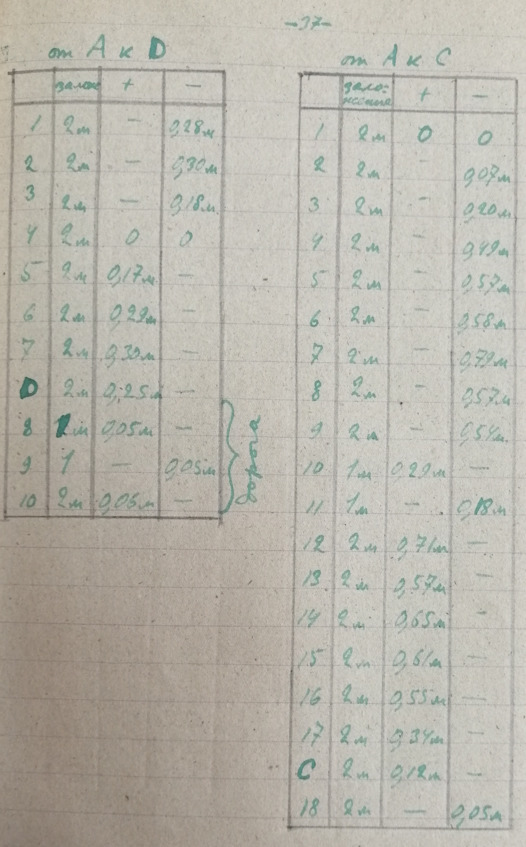 -37-
от А к D
залож + —
1 2м — 0,28м
2 2м — 0,30м
3 2м — 0,18м
4 2м 0 0
5 2м 0,17м —
6 2м 0,29м —
7 2м 0,30м —
D 2м 0,25м —
8 1м 0,05м —
9 1 — 0,05м
10 2м 0,06м —
дорога
от А к С
зало-
жение + —
1 2м 0 0
2 2м - 0,07м
3 2м - 0,20м
4 2м - 0,49м
5 2м - 0,57м
6 2м - 0,58м
7 2м - 0,79м
8 2м - 0,57м
9 2м - 0,54м
10 1м 0,29м —
11 1м - 0,18м
12 2м 0,71м —
13 2м 0,57м —
14 2м 0,65м -
15 2м 0,61м —
16 2м 0,55м —
17 2м 0,34м —
С 2м 0,12м —
18 2м — 0,05м